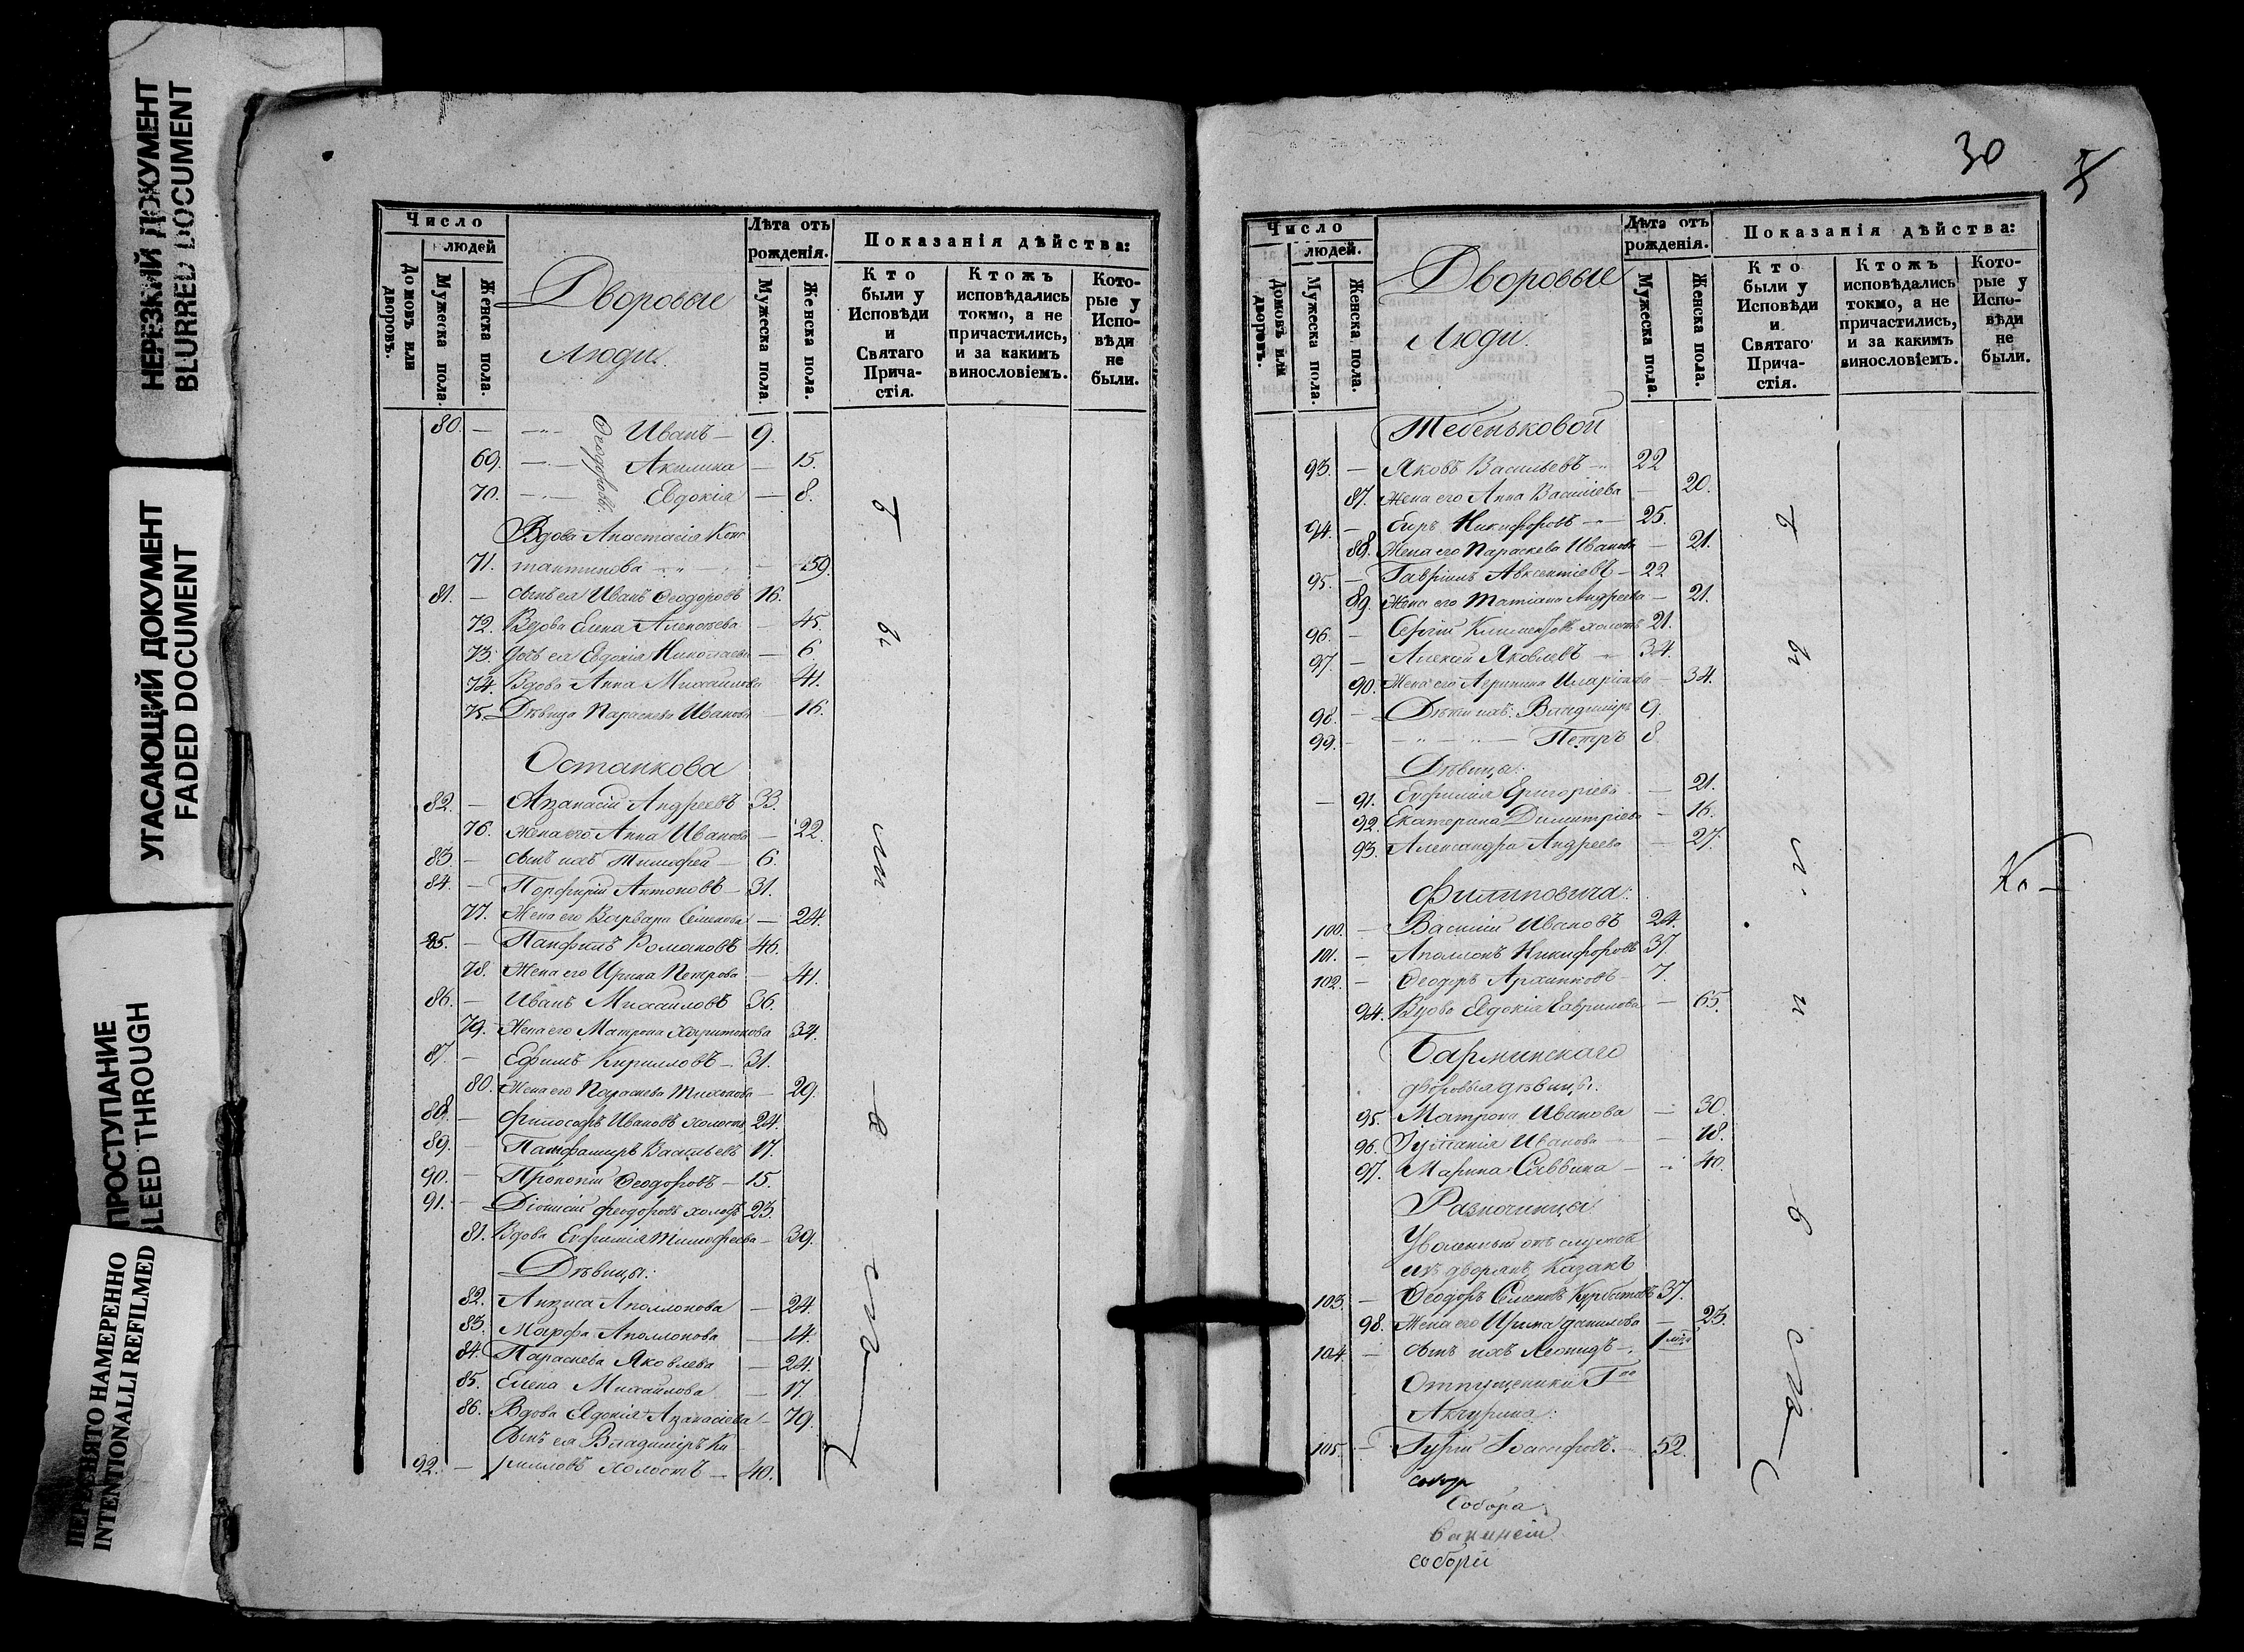 НЕРЕЗКИЙ ДОКУМЕНТ
BLURRED DOCUMENT
УГАСАЮЩИЙ ДОКУМЕНТ
FADED DOCUMENT
ПРОСТУПАНИЕ
BLEED THROUGH
ПЕРЕСНЯТО НАМЕРЕННО
INTENTIONALLI REFILMED
Число
людей
Домовъ или дворовъ.
Мужеска пола.
Женска пола.
Дворовые
люди.
Лѣта отъ рожденія.
Мужеска пола.
Женска пола.
Показанія дѣйства:
Кто были у Исповѣди и Святаго Причастія.
Ктожъ исповѣдались токмо, а не причастились, и за какимъ винословіемъ.
Которые у Исповѣди не были.
80. — Иванъ — 9.
Ѳеодоровы
69. — Акилина — 15.
70. — Евдокія — 8.
Вдова Анастасія Конс
71. тантинова — 59.
81. — Сынъ ея Иванъ Ѳеодоровъ 16.
72. Вдова Елена Алексѣева — 45.
73. Дочь ея Евдокія Николаева — 6
74. Вдова Анна Михаилова 41.
75. Дѣвица Параскева Иванова — 16.
Останкова
82. — Аѳанасій Андреевъ 33.
76. Жена его Анна Иванова — 22.
83. — Сынъ ихъ Тимофей — 6.
84. — Порфирій Антоновъ — 31.
77. Жена его Варвара Семенова — 24.
85. — Панфилъ Романовъ 46.
78. Жена его Ирина Петрова — 41.
86. — Иванъ Михаиловъ 36.
79. Жена его Матрона Харитонова 34.
87. — Ефимъ Кирилловъ — 31.
80. Жена его Параскева Тихонова — 29.
88. — Философъ Ивановъ холостъ 24.
89. — Васильевъ 17.
90. — Прокопій Ѳеодоровъ — 15.
91. — Діонисій Феодоровъ холостъ 23.
81. Вдова Евфимія Тимофеева — 39.
Дѣвицы:
82. Анѳиса Аполлонова — 24.
83. Марфа Аполлонова — 14.
84. Параскева Яковлева — 24.
85. Елена Михаилова — 17.
86. Вдова Евдокія Аѳанасіева — 79.
Сынъ ея Владиміръ Ки
92. — рилловъ холостъ — 40.
30
Число
людей.
Домовъ или дворовъ.
Мужеска пола.
Женска пола.
Дворовые
люди.
Лѣта отъ рожденія.
Мужеска пола.
Женска пола.
Показанія дѣйства:
Кто были у Исповѣди и Святаго Причастія.
Ктожъ исповѣдались токмо, а не причастились, и за какимъ винословіемъ.
Которые у Исповѣди не были.
Тебеньковой
93. — Яковъ Васильевъ 22
87. Жена его Анна Василіева — 20.
94. — Никифоровъ — 25.
88. Жена его Параскева Иванова — 21.
95. — Гавріилъ Авксентіевъ — 22
89. Жена его Татіана Андреева — 21.
96. — Сергій Климентовъ холостъ 21.
97. — Алексій Яковлевъ 34.
90. Жена его Агрипина Иларіонова — 34.
98. — Дѣти ихъ: Владиміръ 9.
99. — Петръ 8.
Дѣвицы:
91. Евфимія Григоріева — 21.
92. Екатерина Димитріева — 16.
93. Александра Андреева — 27.
Филиповича:
100. — Василій Ивановъ 24.
101. — Аполлонъ Никифоровъ 37
102. — Ѳеодоръ Архиповъ — 7.
94. Вдова Евдокія Гаврилова — 65.
Барминскаго
дворовыя дѣвицы:
95. Матрона Иванова — 30.
96. Іуліанія Иванова — 18.
97. Марина Саввина — 40.
Разночинцы
Уволенный отъ службы
изъ дворянъ казакъ
103. — Ѳеодоръ Семеновъ Курбатовъ 37.
98. Жена его Ирина Данилова — 23.
104. — Сынъ ихъ Леонидъ — 1
Отпущеники Гна
Акчурина:
105. — Гурій Іосифовъ. — 52.
Собора
соборы